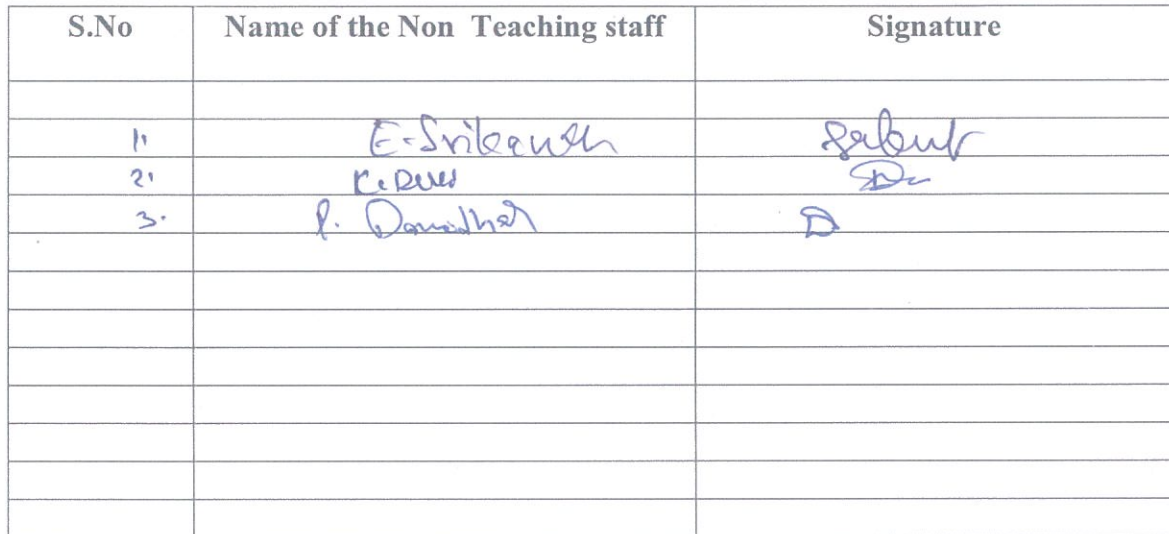 S.No Name of the Non Teaching staff Signature
1. E. Srikanth
2. K.
3. P. Damodhar